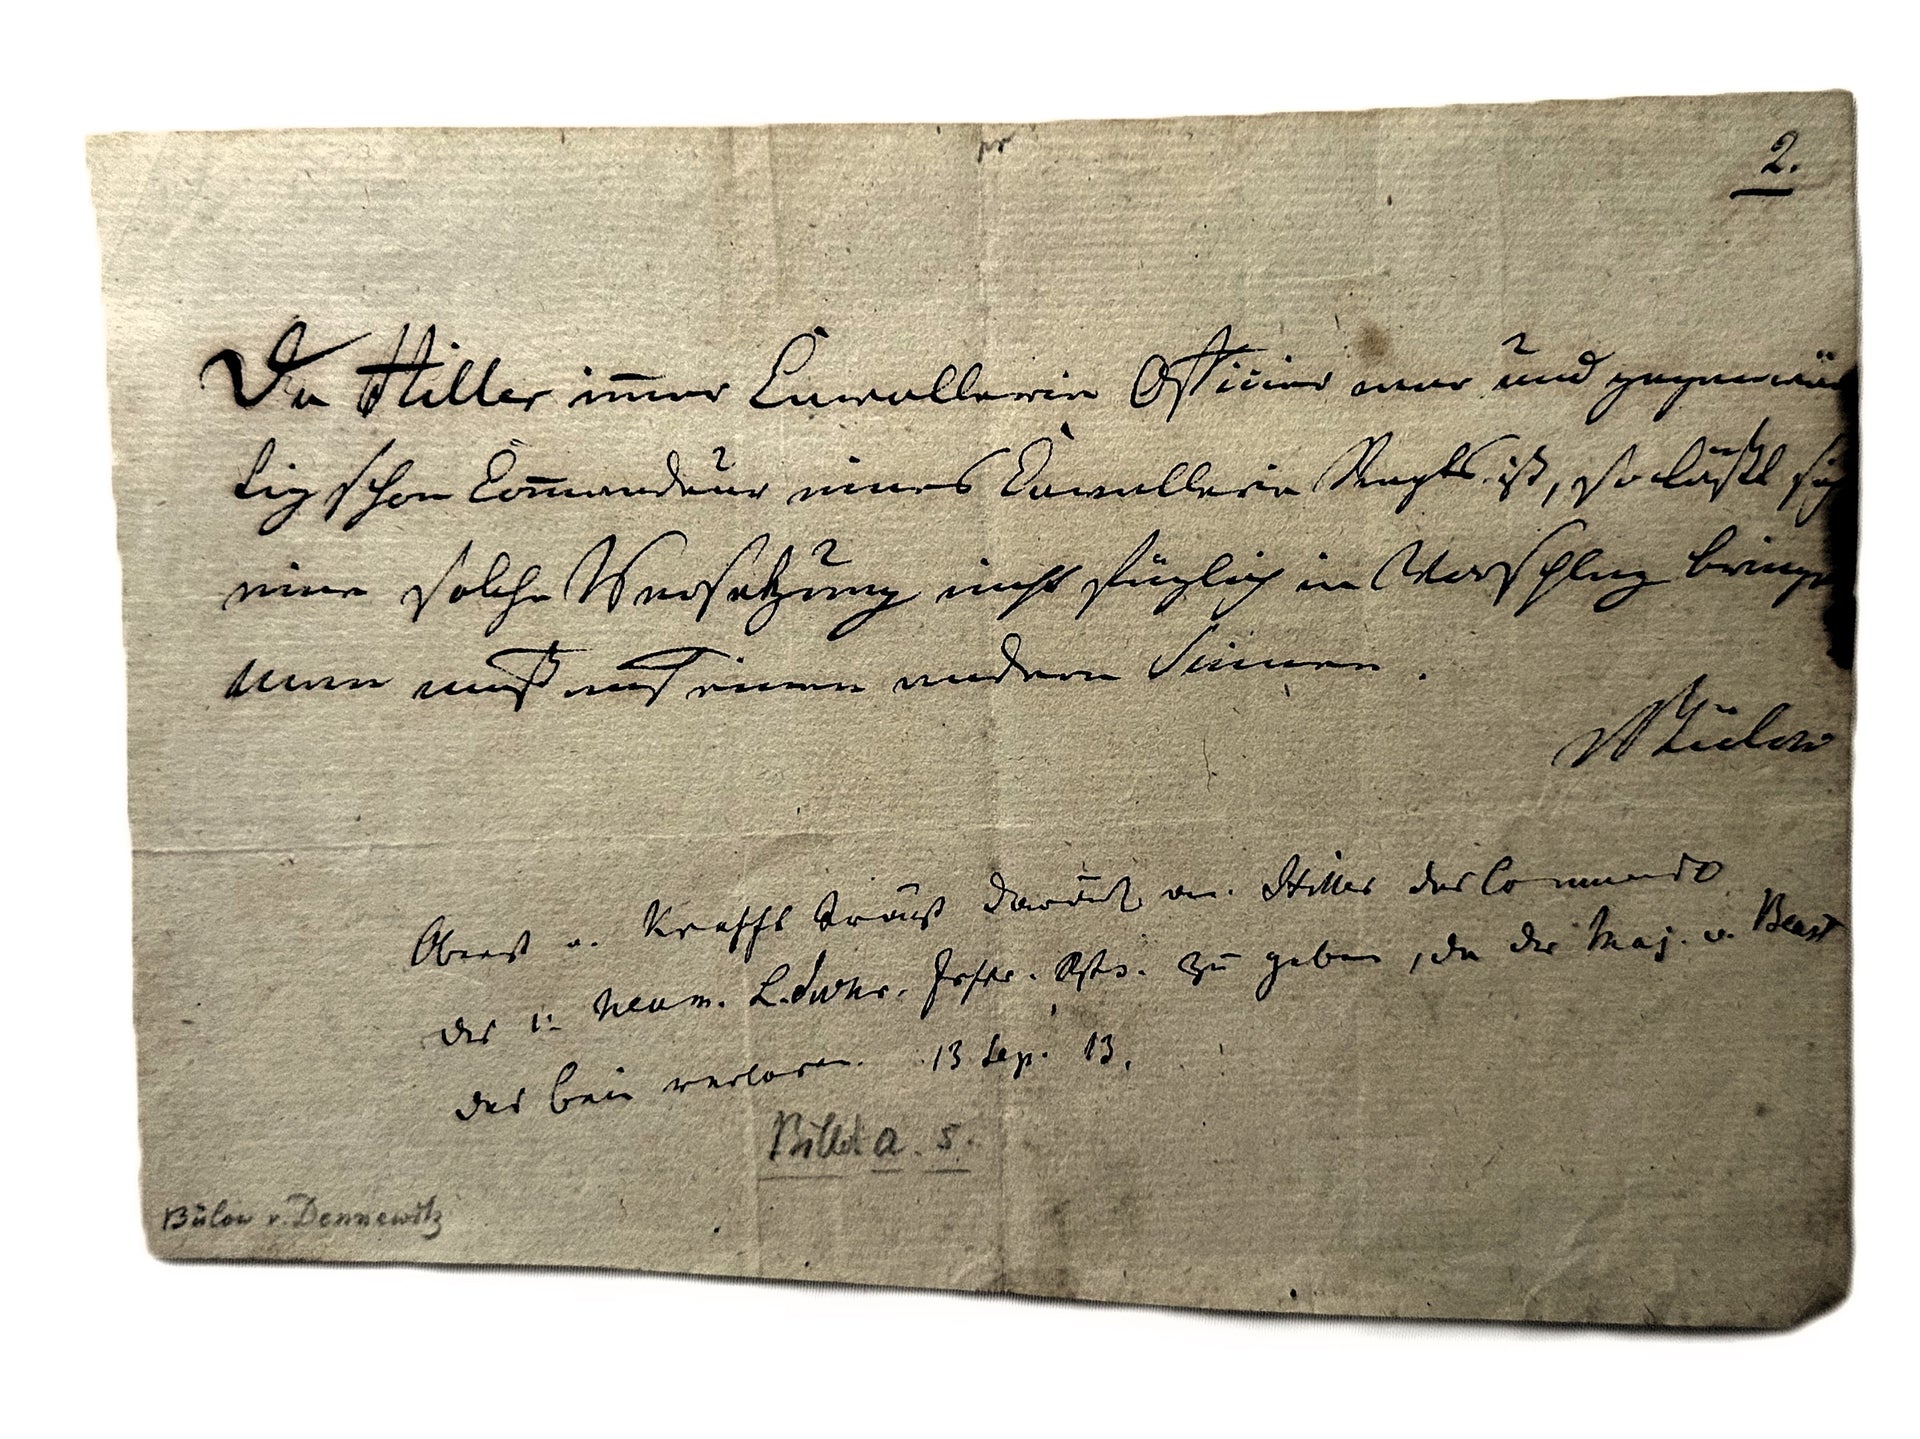 2.
Da Hiller immer Cavallerie Officier war und gegenwär
tig schon Commandeur eines Cavallerie Regts. ist, so läßt sich
eine solche Versetzung nicht füglich in Vorschlag bringen
man muß auf einen andern sinnen.
Bülow
Oberst v. Krafft trägt darauf an. Hiller das Commando
des Neum. L.dwhr. Inftr. Rgts. zu geben, da der Maj. v.
das Bein verloren. 13 Sep. 13.
Billet a. s.
Bülow v. Dennewitz